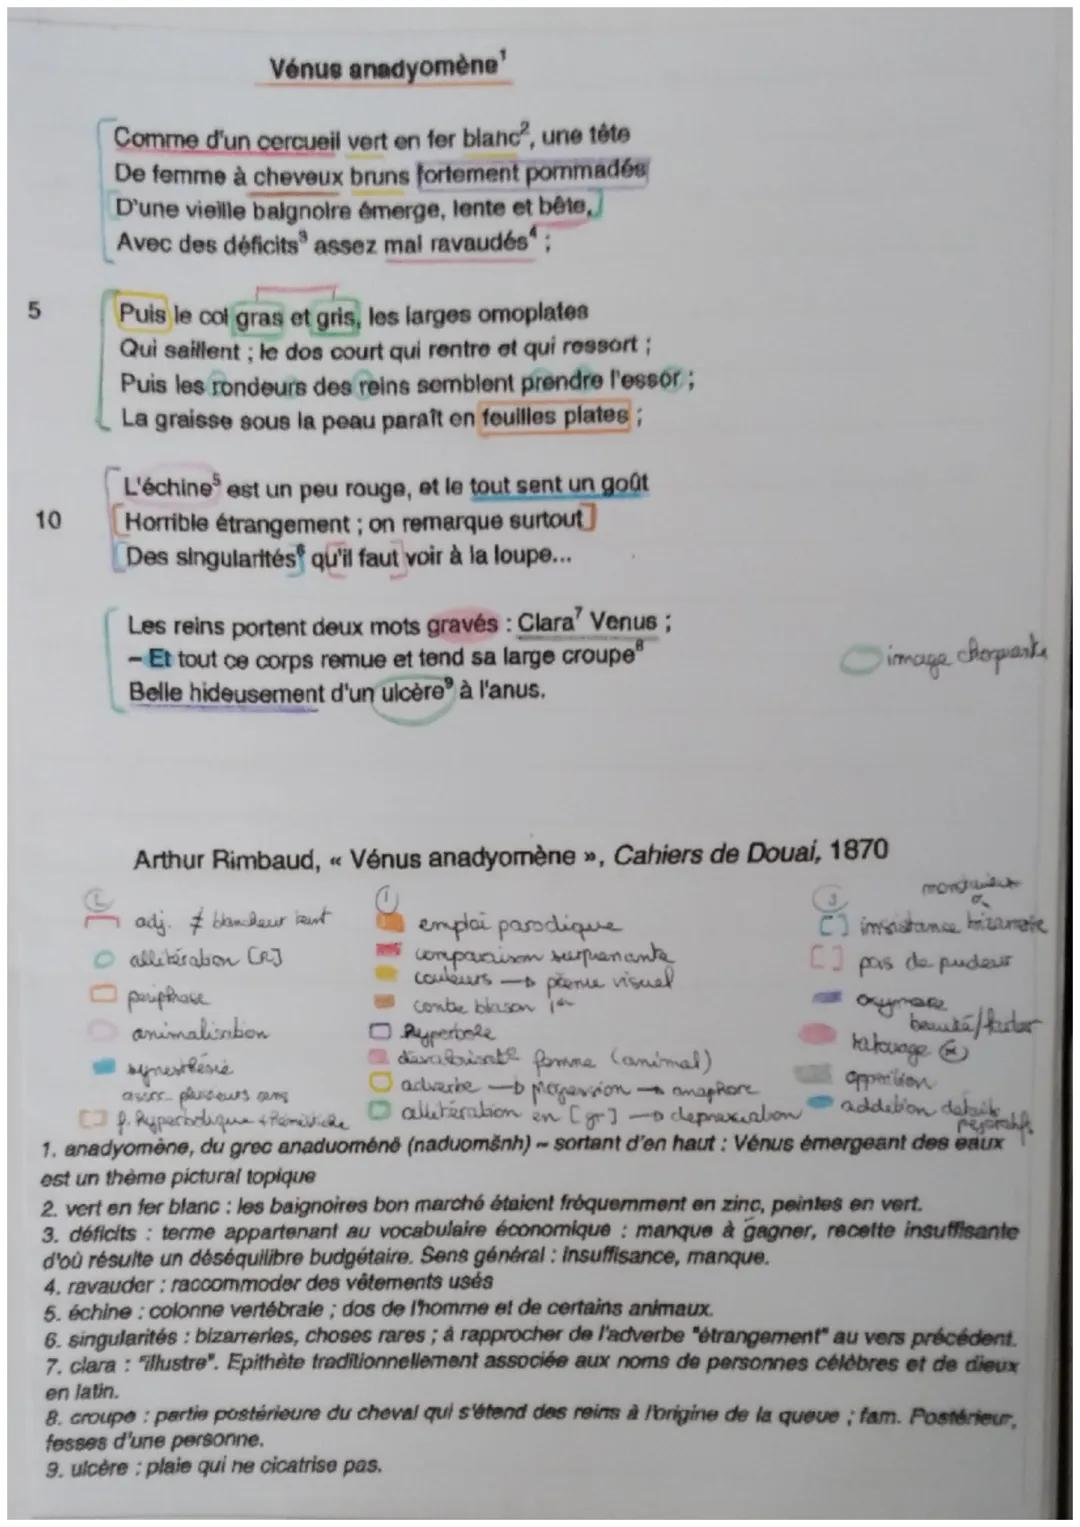 Vénus anadyomène¹
Comme d'un cercueil vert en fer blanc², une tête
De femme à cheveux bruns fortement pommadés
D'une vieille baignoire émerge, lente et bête,
Avec des déficits³ assez mal ravaudés⁴ ;
5 Puis le col gras et gris, les larges omoplates
Qui saillent ; le dos court qui rentre et qui ressort ;
Puis les rondeurs des reins semblent prendre l'essor ;
La graisse sous la peau paraît en feuilles plates ;
L'échine⁵ est un peu rouge, et le tout sent un goût
10 Horrible étrangement ; on remarque surtout
Des singularités⁶ qu'il faut voir à la loupe...
Les reins portent deux mots gravés : Clara⁷ Venus ;
– Et tout ce corps remue et tend sa large croupe⁸
image choquante
Belle hideusement d'un ulcère⁹ à l'anus.
Arthur Rimbaud, « Vénus anadyomène », Cahiers de Douai, 1870
2
adj. ≠ blancheur
allitération [R]
périphrase
animalisation
synesthésie
plusieurs sens
f. hyperbolique
1
emploi parodique
comparaison surprenante
couleurs → visuel
contre blason
hyperbole
femme (animal)
adverbe → progression → anaphore
allitération en [gr] → dépréciation
3
insistance bizarrerie
pas de pudeur
oxymore
beauté/
tatouage
opposition
addition détail
péjoratif
1. anadyomène, du grec anaduoménê (naduomšnh) ~ sortant d'en haut : Vénus émergeant des eaux
est un thème pictural topique
2. vert en fer blanc : les baignoires bon marché étaient fréquemment en zinc, peintes en vert.
3. déficits : terme appartenant au vocabulaire économique : manque à gagner, recette insuffisante
d'où résulte un déséquilibre budgétaire. Sens général : Insuffisance, manque.
4. ravauder : raccommoder des vêtements usés
5. échine : colonne vertébrale ; dos de l'homme et de certains animaux.
6. singularités : bizarreries, choses rares ; à rapprocher de l'adverbe "étrangement" au vers précédent.
7. clara : "illustre". Epithète traditionnellement associée aux noms de personnes célèbres et de dieux
en latin.
8. croupe : partie postérieure du cheval qui s'étend des reins à l'origine de la queue ; fam. Postérieur,
fesses d'une personne.
9. ulcère : plaie qui ne cicatrise pas.